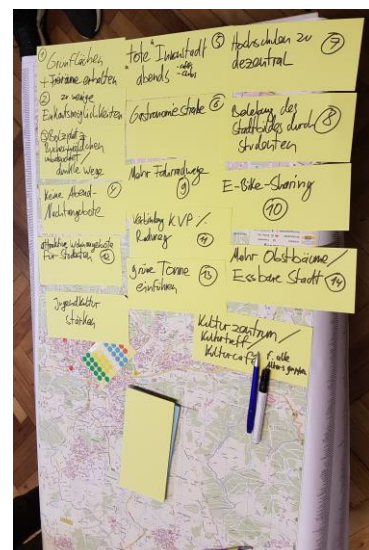 ① Grünflächen
+ Freiräume erhalten
② zu wenige
Einkaufsmöglichkeiten
③ Bolzplatz
unbeleuchtet /
dunkle Wege
keine Abend-
Nachtangebote
attraktive Wohnangebote
für Studenten ⑫
Jugendkultur
stärken
"tote" Innenstadt ⑤
abends
Gastronomiestraße ⑥
Mehr Fahrradwege
⑨
Verbindung KVP /
Radweg ⑪
grüne Tonne ⑬
einführen
Hochschulen zu ⑦
dezentral
Belebung des
Stadtbildes durch ⑧
Studenten
E-Bike-Sharing
⑩
Mehr Obstbäume /
Essbare Stadt ⑭
Kulturzentrum /
Kulturtreff /
Kulturcafé f. alle
Altersgruppen